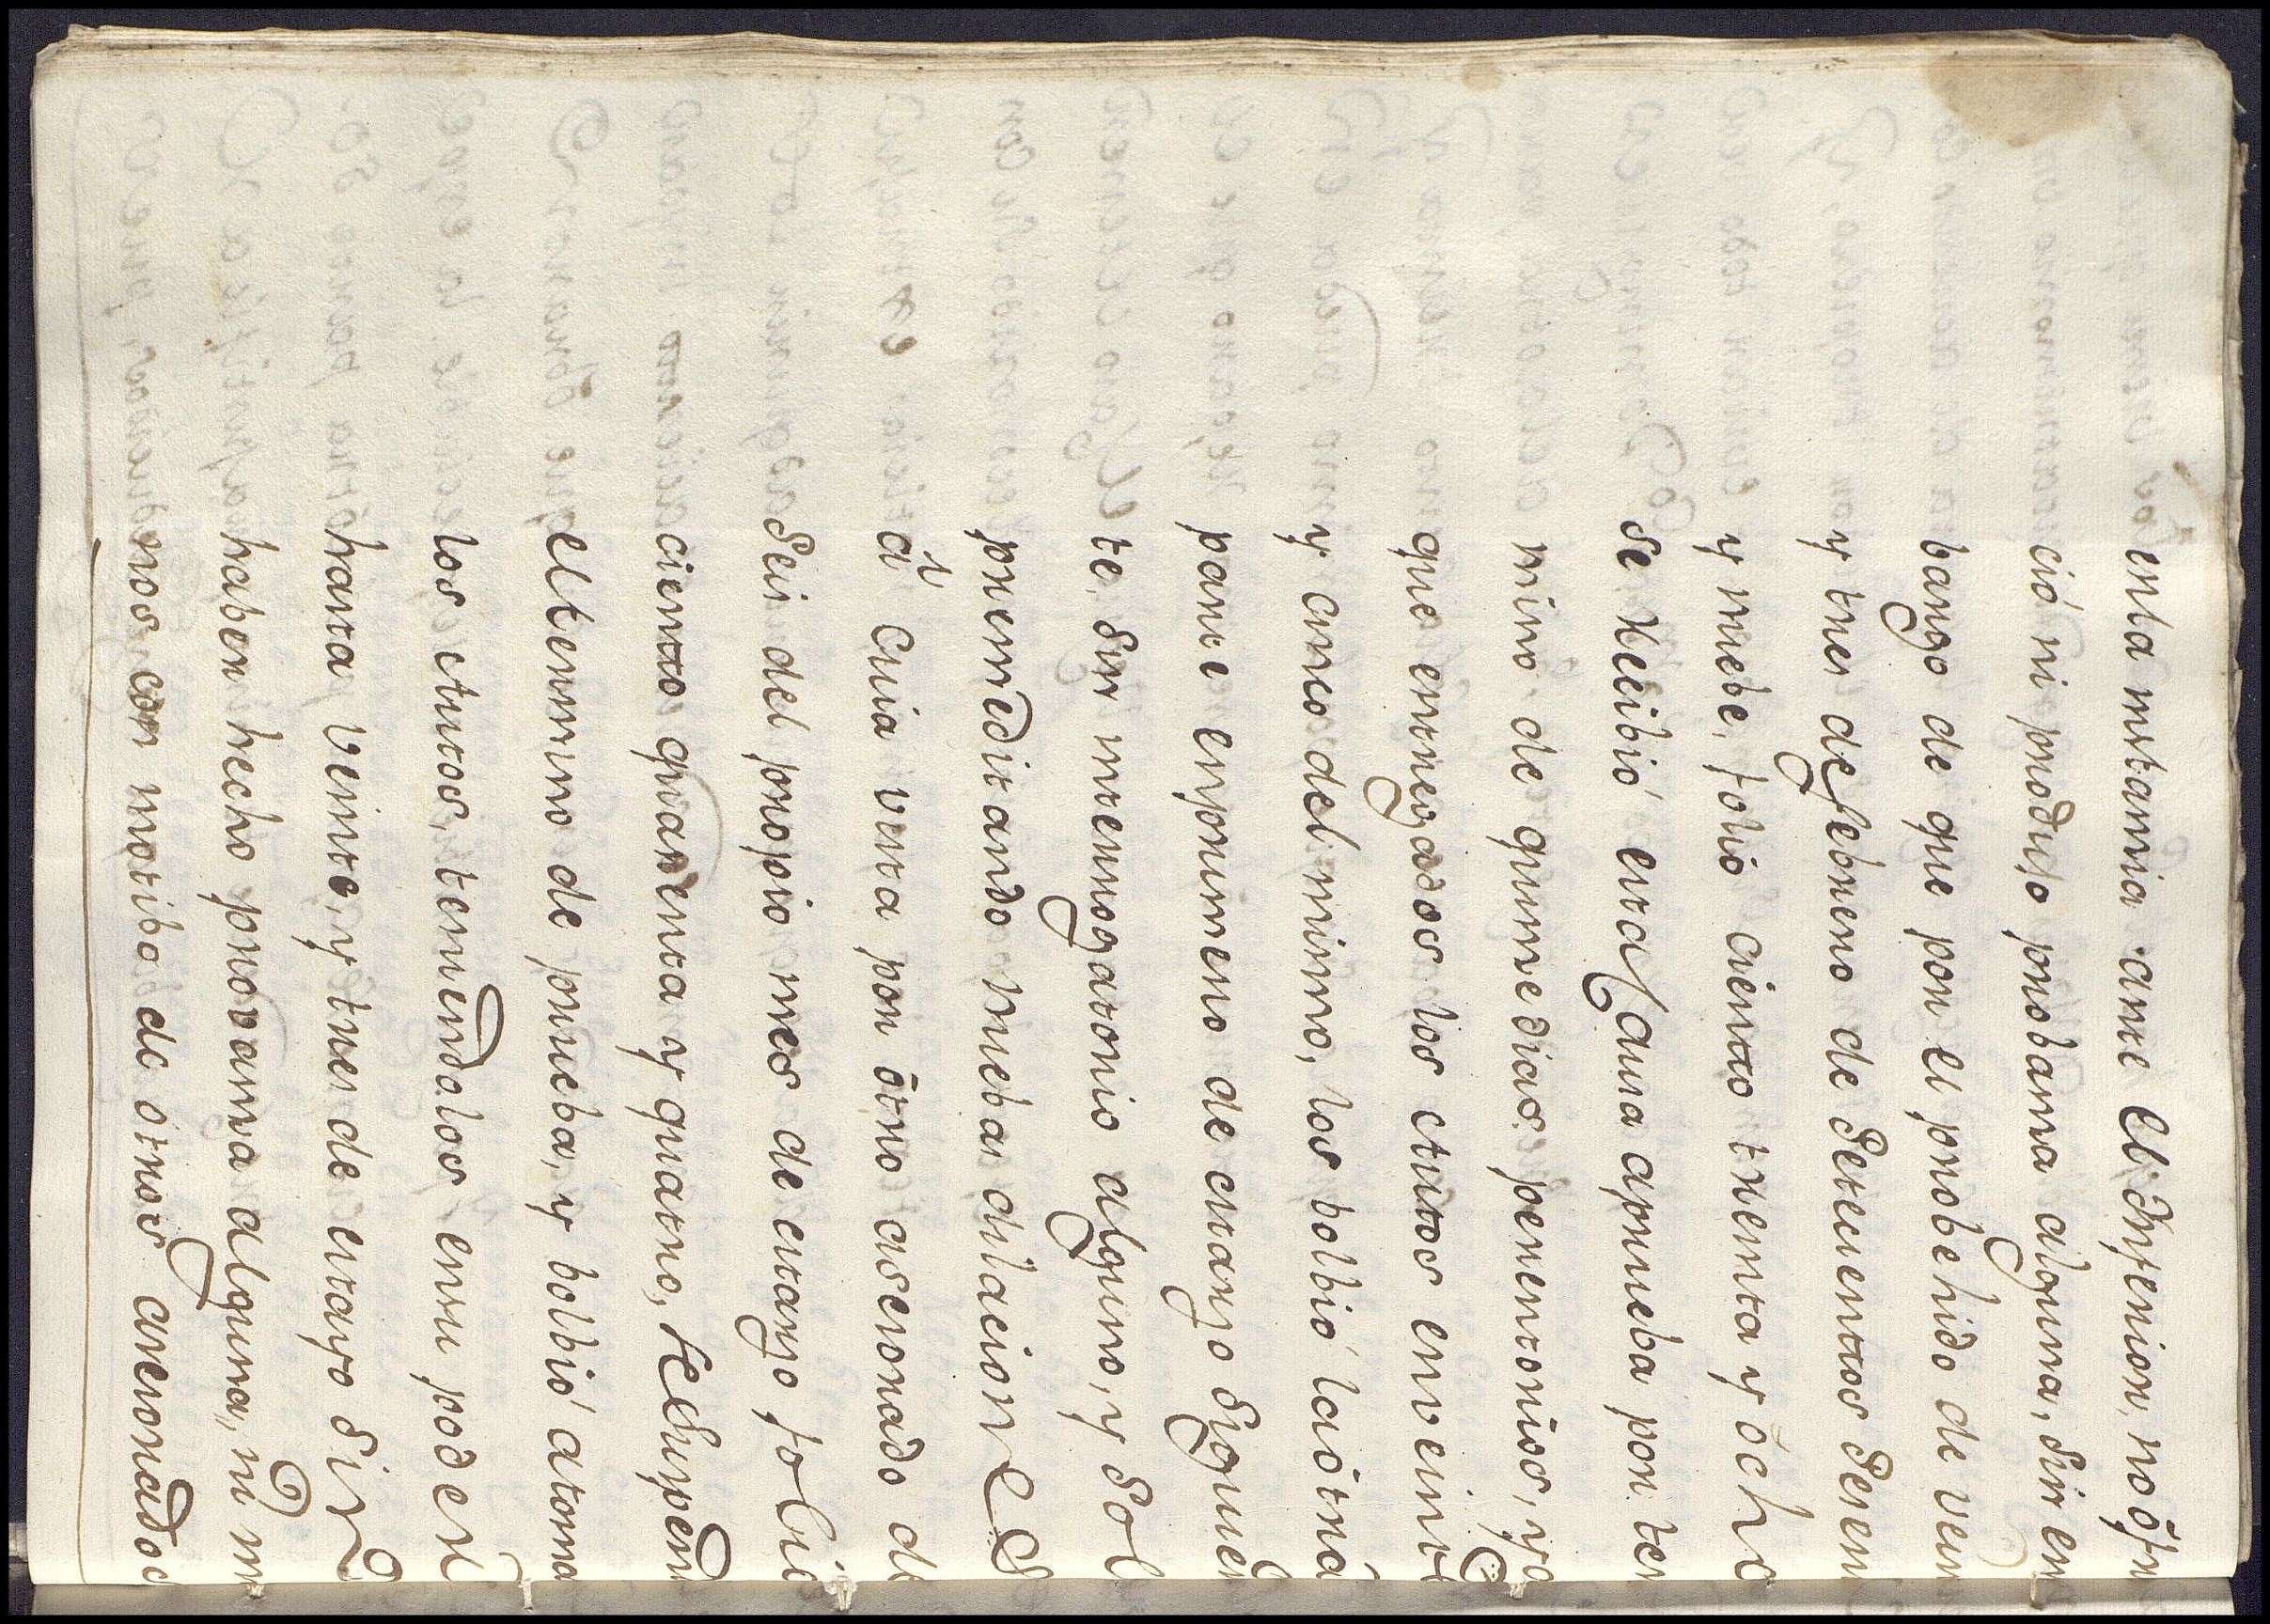 esta instancia ante el Inferior, no ofre
ció ni produjo probanza alguna, sin em
bargo de que por el probehido de vein
y tres de febrero de setecientos sesen
y nuebe, folio ciento treinta y ocho
se recibió esta Causa aprueba por ter
mino de quinze dias perentorios, y a
que entregados los autos en veinte
y cinco del mismo, los bolbió la otra
parte en primero de marzo siguien
te, sin interrogatorio alguno, y sol
premeditando nuebas dilaciones
â cuia vista por otro asesorado de
seis del propio mes de marzo folio
ciento quarenta y quatro, se suspen
el termino de prueba, y bolbió a toma
los autos, teniendolos en su poder
hasta veinte, y tres de mayo sin
haber hecho provanza alguna, ni m
nos con motibo de otros asesorados